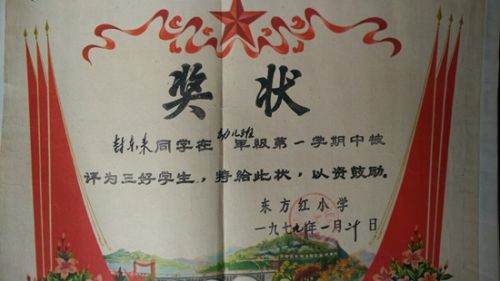 奖状
封东来同学在幼儿班年级第一学期中被
评为三好学生，特给此状，以资鼓励。
东方红小学
一九七九年一月廿日